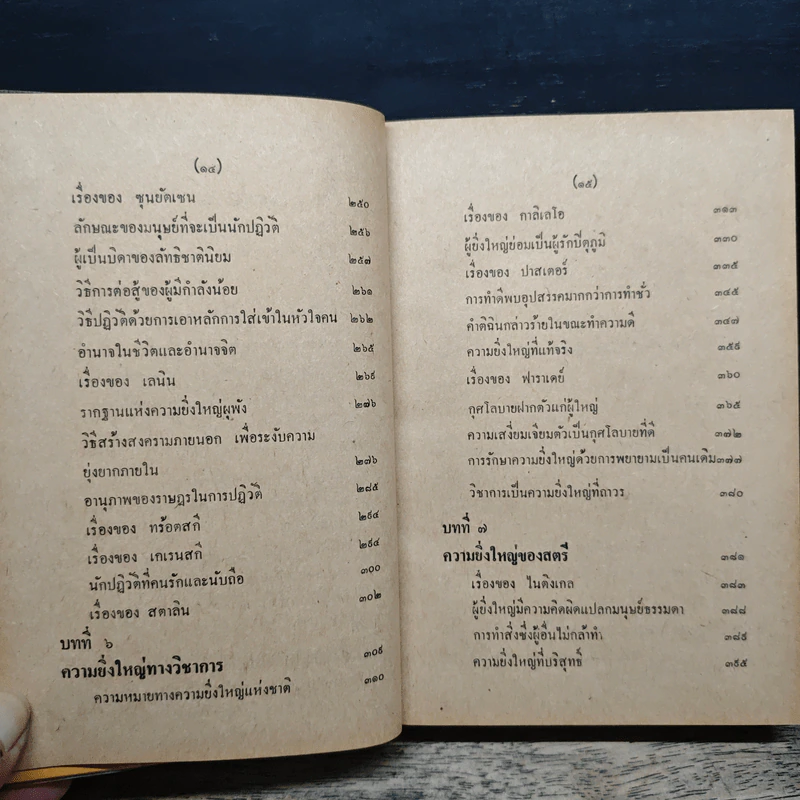 (๑๔)
เรื่องของ ซุนยัตเซน ๒๕๐
ลักษณะของมนุษย์ที่จะเป็นนักปฏิวัติ ๒๕๖
ผู้เป็นบิดาของลัทธิชาตินิยม ๒๕๗
วิธีการต่อสู้ของผู้มีกำลังน้อย ๒๖๑
วิธีปฏิวัติด้วยการเอาหลักการใส่เข้าในหัวใจคน ๒๖๒
อำนาจในชีวิตและอำนาจจิต ๒๖๕
เรื่องของ เลนิน ๒๖๙
รากฐานแห่งความยิ่งใหญ่ผุพัง ๒๗๖
วิธีสร้างสงครามภายนอก เพื่อระงับความ
ยุ่งยากภายใน ๒๗๖
อานุภาพของราษฎรในการปฏิวัติ ๒๘๕
เรื่องของ ทร้อตสกี ๒๙๔
เรื่องของ เกเรนสกี ๒๙๔
นักปฏิวัติที่คนรักและนับถือ ๓๐๐
เรื่องของ สตาลิน ๓๐๒
บทที่ ๖
ความยิ่งใหญ่ทางวิชาการ ๓๐๙
ความหมายทางความยิ่งใหญ่แห่งชาติ ๓๑๐
(๑๕)
เรื่องของ กาลิเลโอ ๓๑๓
ผู้ยิ่งใหญ่ย่อมเป็นผู้รักปีตุภูมิ ๓๓๐
เรื่องของ ปาสเตอร์ ๓๓๕
การทำดีพบอุปสรรคมากกว่าการทำชั่ว ๓๔๕
คำติฉินกล่าวร้ายในขณะทำความดี ๓๔๗
ความยิ่งใหญ่ที่แท้จริง ๓๕๙
เรื่องของ ฟาราเดย์ ๓๖๐
กุศโลบายฝากตัวแก่ผู้ใหญ่ ๓๖๕
ความเสงี่ยมเจียมตัวเป็นกุศโลบายที่ดี ๓๗๒
การรักษาความยิ่งใหญ่ด้วยการพยายามเป็นคนเดิม ๓๗๗
วิชาการเป็นความยิ่งใหญ่ที่ถาวร ๓๘๐
บทที่ ๗
ความยิ่งใหญ่ของสตรี ๓๘๑
เรื่องของ ไนติงเกล ๓๘๓
ผู้ยิ่งใหญ่มีความคิดผิดแปลกมนุษย์ธรรมดา ๓๘๘
การทำสิ่งซึ่งผู้อื่นไม่กล้าทำ ๓๘๙
ความยิ่งใหญ่ที่บริสุทธิ์ ๓๙๕